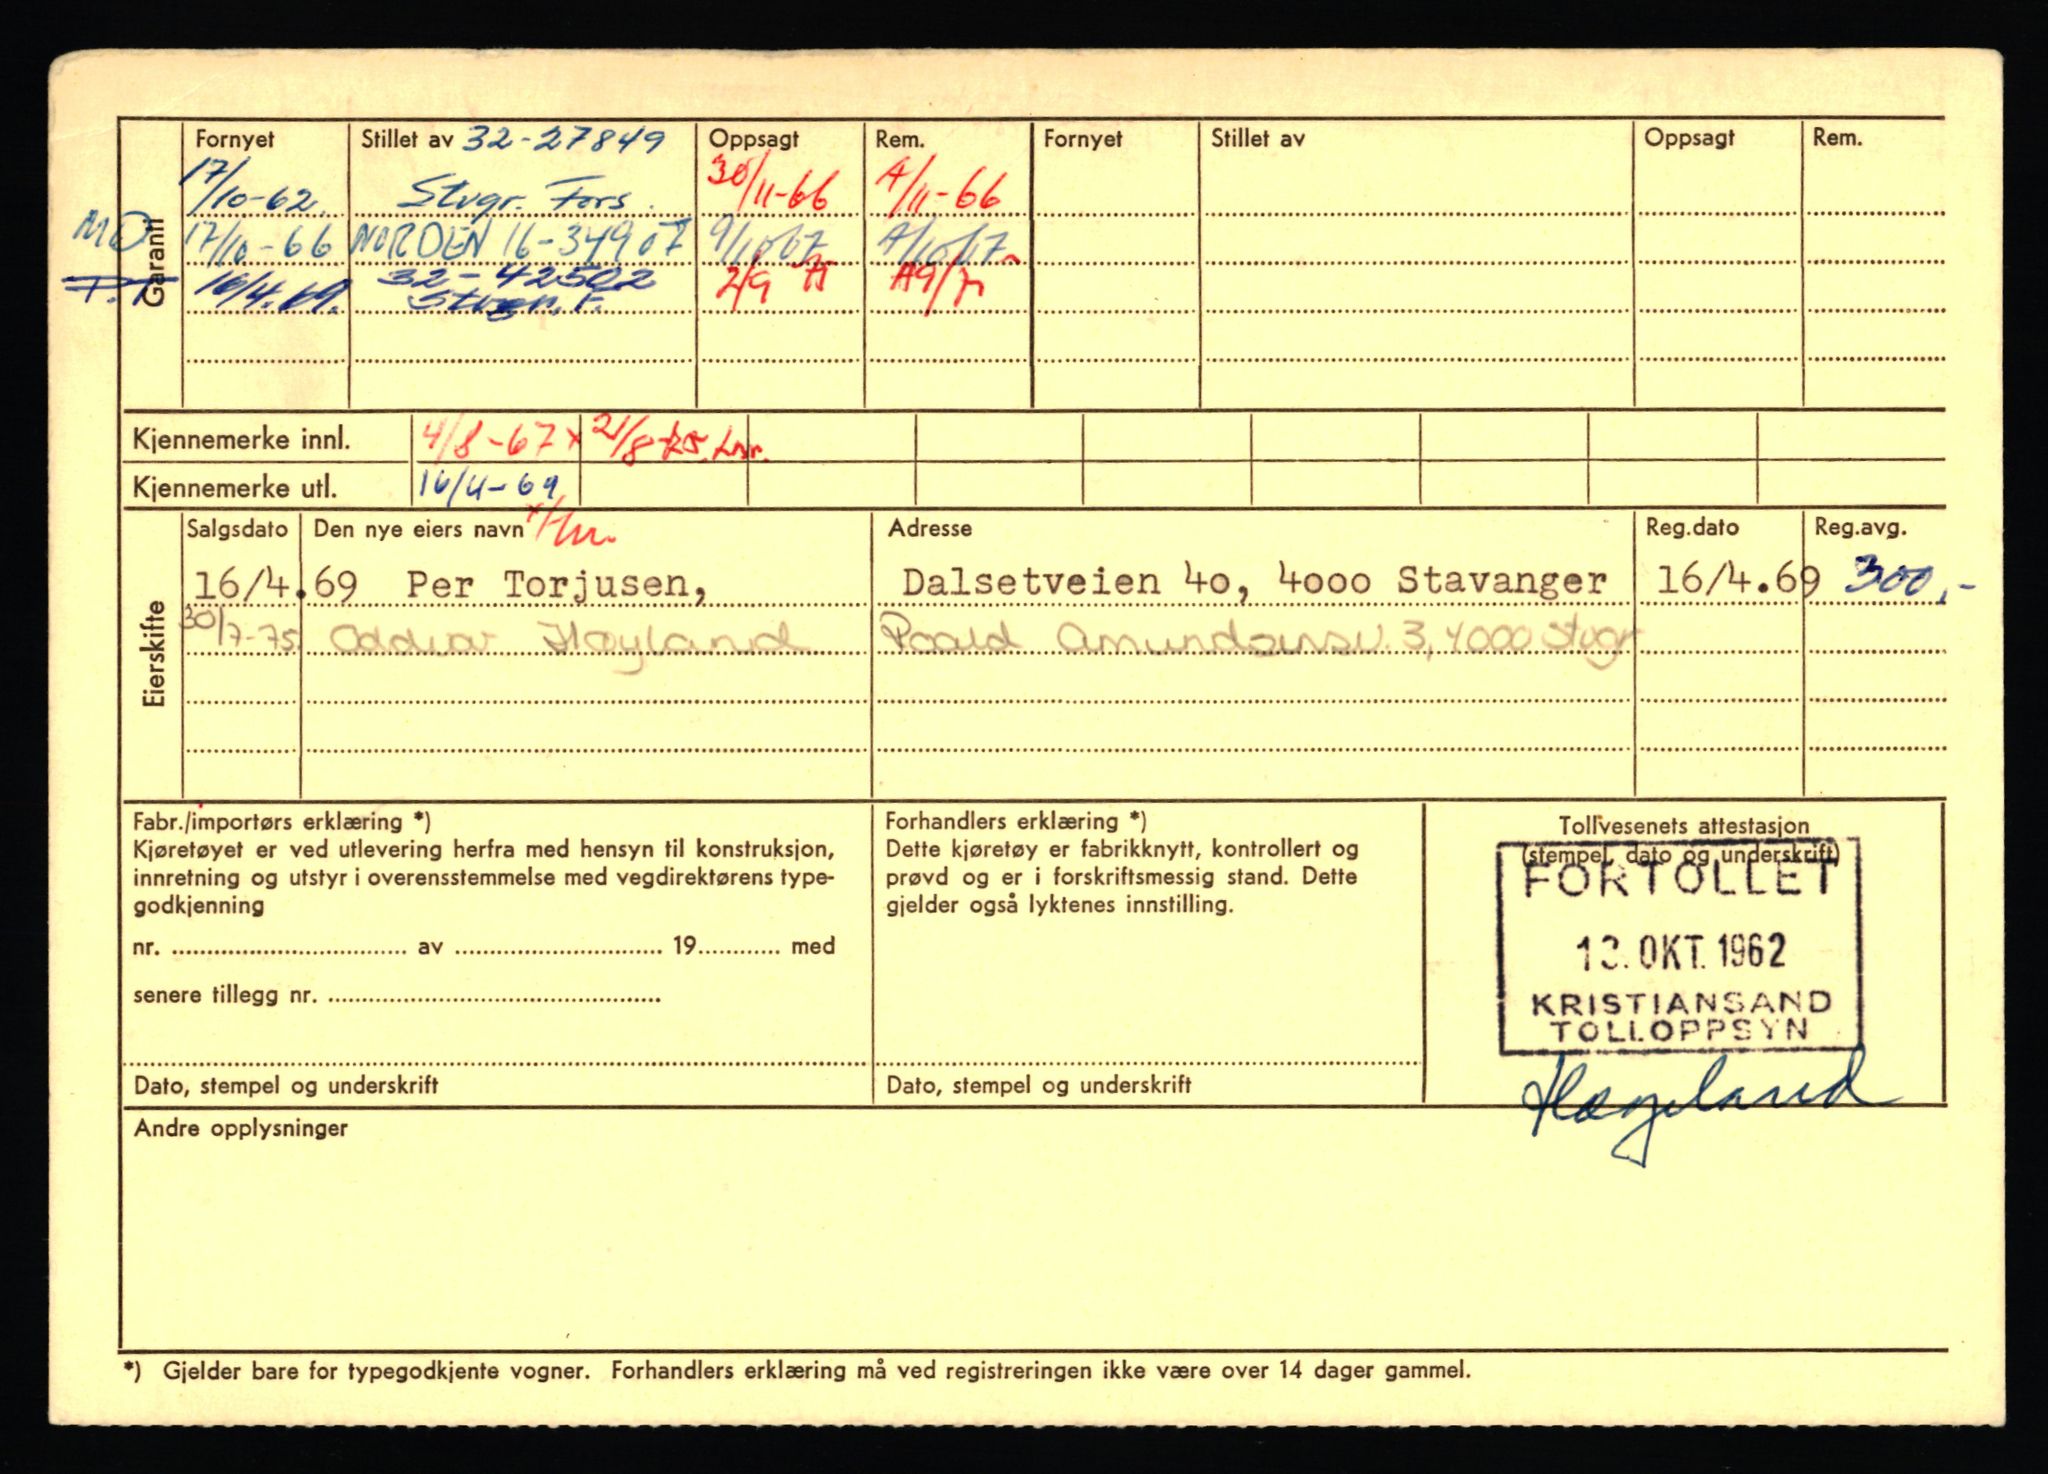 Fornyet Stillet av 32-27849 Oppsagt Rem. Fornyet Stillet av Oppsagt Rem.
Garanti
17/10-62. Stvgr. Fors. 30/11-66 A/11-66
MO 17/10-66 NORDEN 16-34907 9/10/67
P.T. 16/4.69. 32-42502 2/9
Stvgr. F.
Kjennemerke innl. 4/8-67 x 21/8-75
Kjennemerke utl. 16/4-69
Eierskifte
Salgsdato Den nye eiers navn Adresse Reg.dato Reg.avg.
16/4.69 Per Torjusen, Dalsetveien 40, 4000 Stavanger 16/4.69 300,-
30/7-75. Oddvar Høyland Roald Amundsensv. 3, 4000 Stvgr
Fabr./importørs erklæring *)
Kjøretøyet er ved utlevering herfra med hensyn til konstruksjon,
innretning og utstyr i overensstemmelse med vegdirektørens type-
godkjenning
nr. av 19 med
senere tillegg nr.
Dato, stempel og underskrift
Forhandlers erklæring *)
Dette kjøretøy er fabrikknytt, kontrollert og
prøvd og er i forskriftsmessig stand. Dette
gjelder også lyktenes innstilling.
Dato, stempel og underskrift
Tollvesenets attestasjon
(stempel, dato og underskrift)
FORTOLLET
13. OKT. 1962
KRISTIANSAND
TOLLOPPSYN
Hægeland
Andre opplysninger
*) Gjelder bare for typegodkjente vogner. Forhandlers erklæring må ved registreringen ikke være over 14 dager gammel.